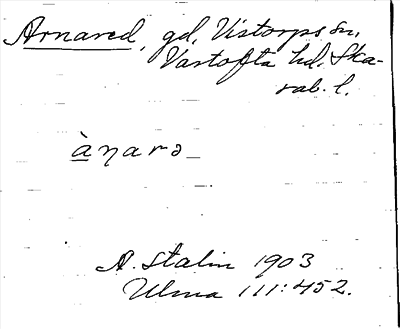 Arnared, gd, Vistorps sn,
Vartofta hd. Ska-
rab. l.
ànarə
A. Stalin 1903
Ulma 111:452.